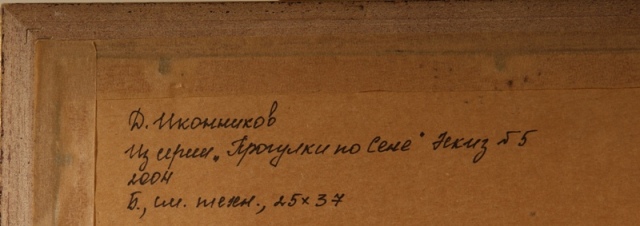 Д. Иконников
Из серии „Прогулки по Сене" Эскиз № 5
2004
Б., см. техн., 25×37